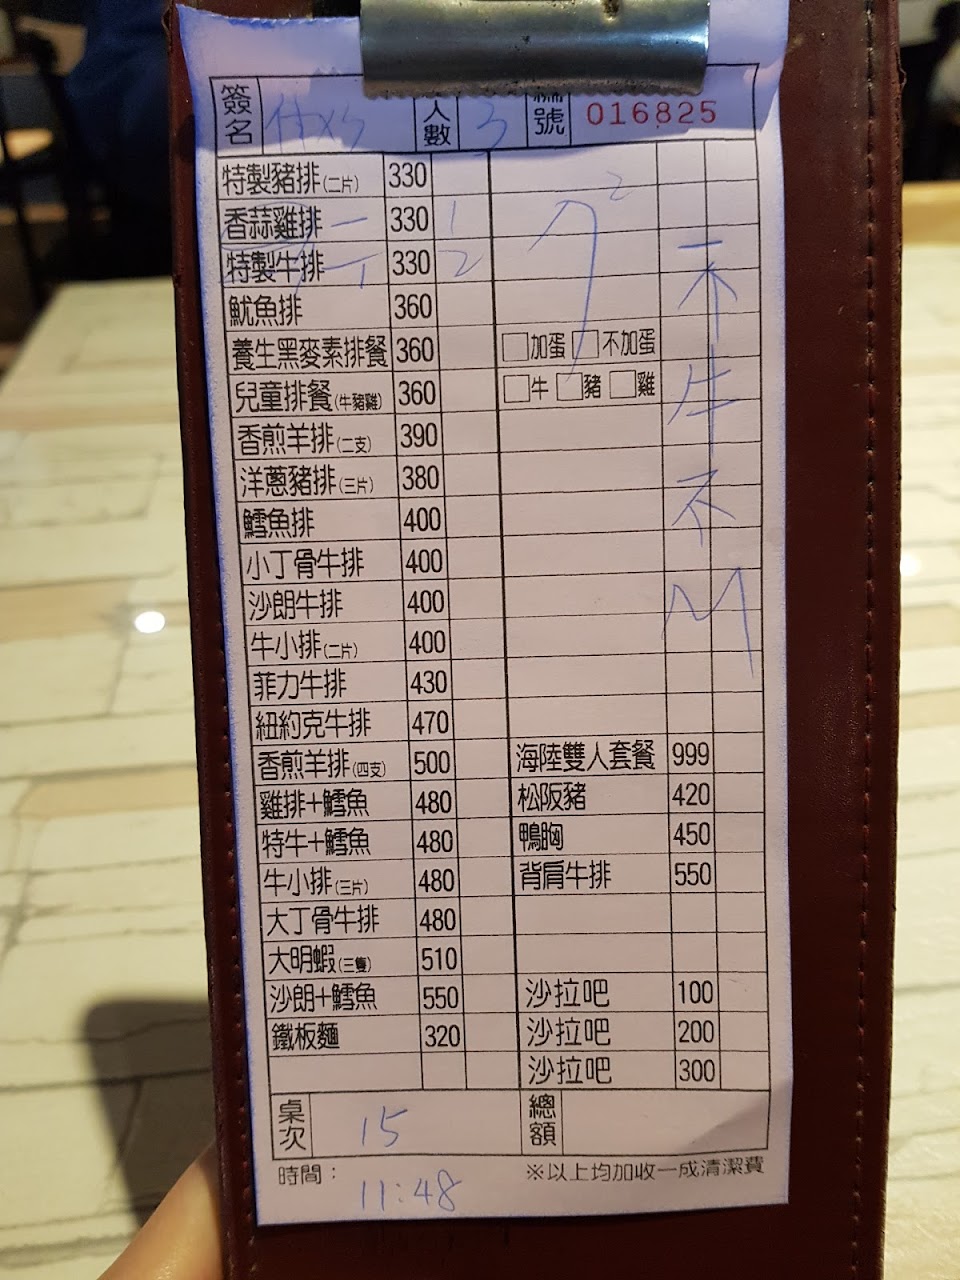 簽名 人數 3 編號 016825
特製豬排(二片) 330
香蒜雞排 330 1
特製牛排 330 2
魷魚排 360
養生黑麥素排餐 360 加蛋 不加蛋
兒童排餐(牛豬雞) 360 牛 豬 雞
香煎羊排(二支) 390
洋蔥豬排(三片) 380
鱈魚排 400
小丁骨牛排 400
沙朗牛排 400
牛小排(二片) 400
菲力牛排 430
紐約克牛排 470
香煎羊排(四支) 500 海陸雙人套餐 999
雞排+鱈魚 480 松阪豬 420
特牛+鱈魚 480 鴨胸 450
牛小排(三片) 480 背肩牛排 550
大丁骨牛排 480
大明蝦(三隻) 510
沙朗+鱈魚 550 沙拉吧 100
鐵板麵 320 沙拉吧 200
沙拉吧 300
桌次 15 總額
時間: 11:48 ※以上均加收一成清潔費